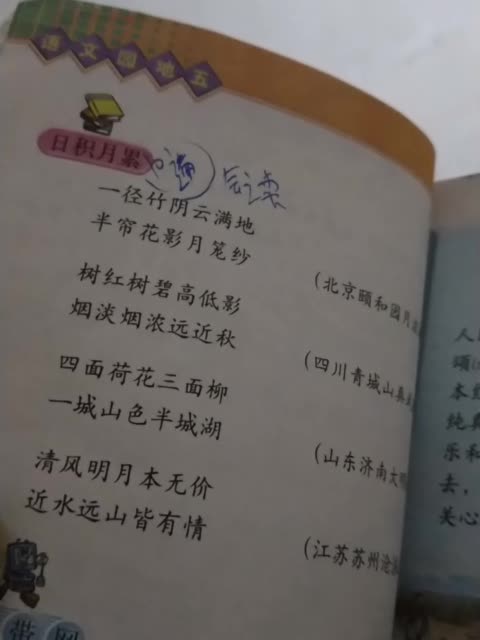 语文园地五
日积月累
一径竹阴云满地
半帘花影月笼纱
(北京颐和园月
树红树碧高低影
烟淡烟浓远近秋
(四川青城山真
四面荷花三面柳
一城山色半城湖
(山东济南大明
清风明月本无价
近水远山皆有情
(江苏苏州沧
人
颂
本
纯真
乐和
去，
关心
带网